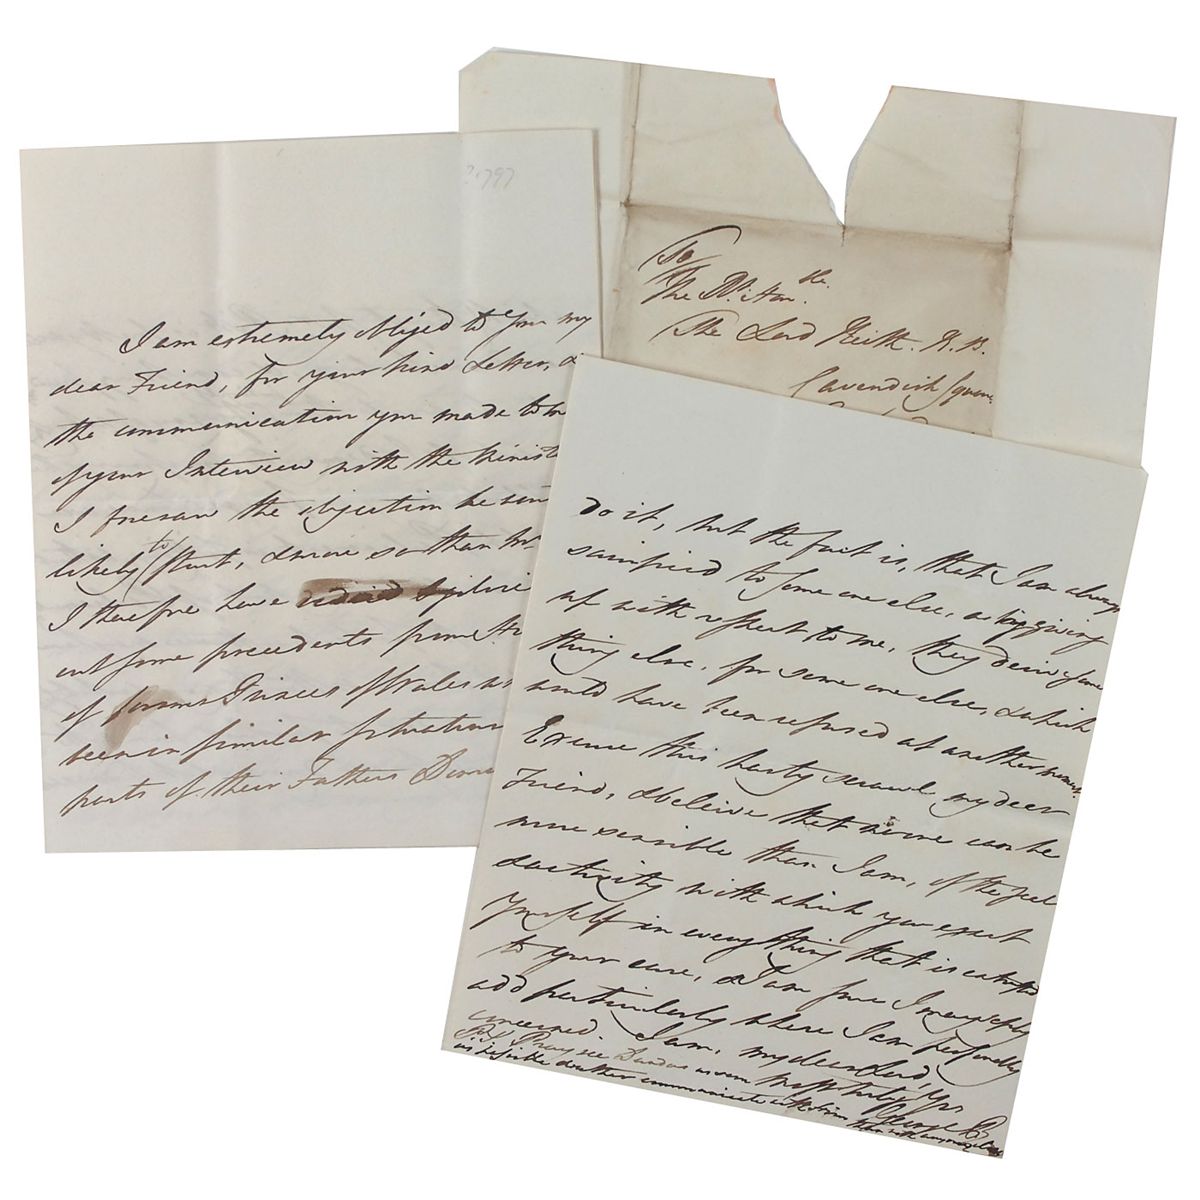 1797
I am extremely obliged to you my
dear Friend, for your kind Letter, &
the communication you made to
of your Interview with the Minist
I foresaw the objection he
likely to start, & more so than
I therefore have
out some precedents from
of former Princes of Wales
been in similar situations
parts of their Fathers
To
The Rt. Hon.ble
The Lord Keith. K.B.
Cavendish Square
do it, but the fact is, that I am always
sacrificed to some one else, as by giving
up with respect to me, they
thing else, for some one else, & which
would have been refused at another
Excuse this hasty scrawl my dear
Friend, & beleive that no one can be
more sensible than I am, of the zeel
& activity with which you exert
Yourself in everything that is entrusted
to your care, & I am sure I may
add particularly where I am personally
concerned. I am, my dear Lord, Yrs.
most truly
George P.
P.S. Pray see Dundas as soon
as possible & rather communicate with him
than with any